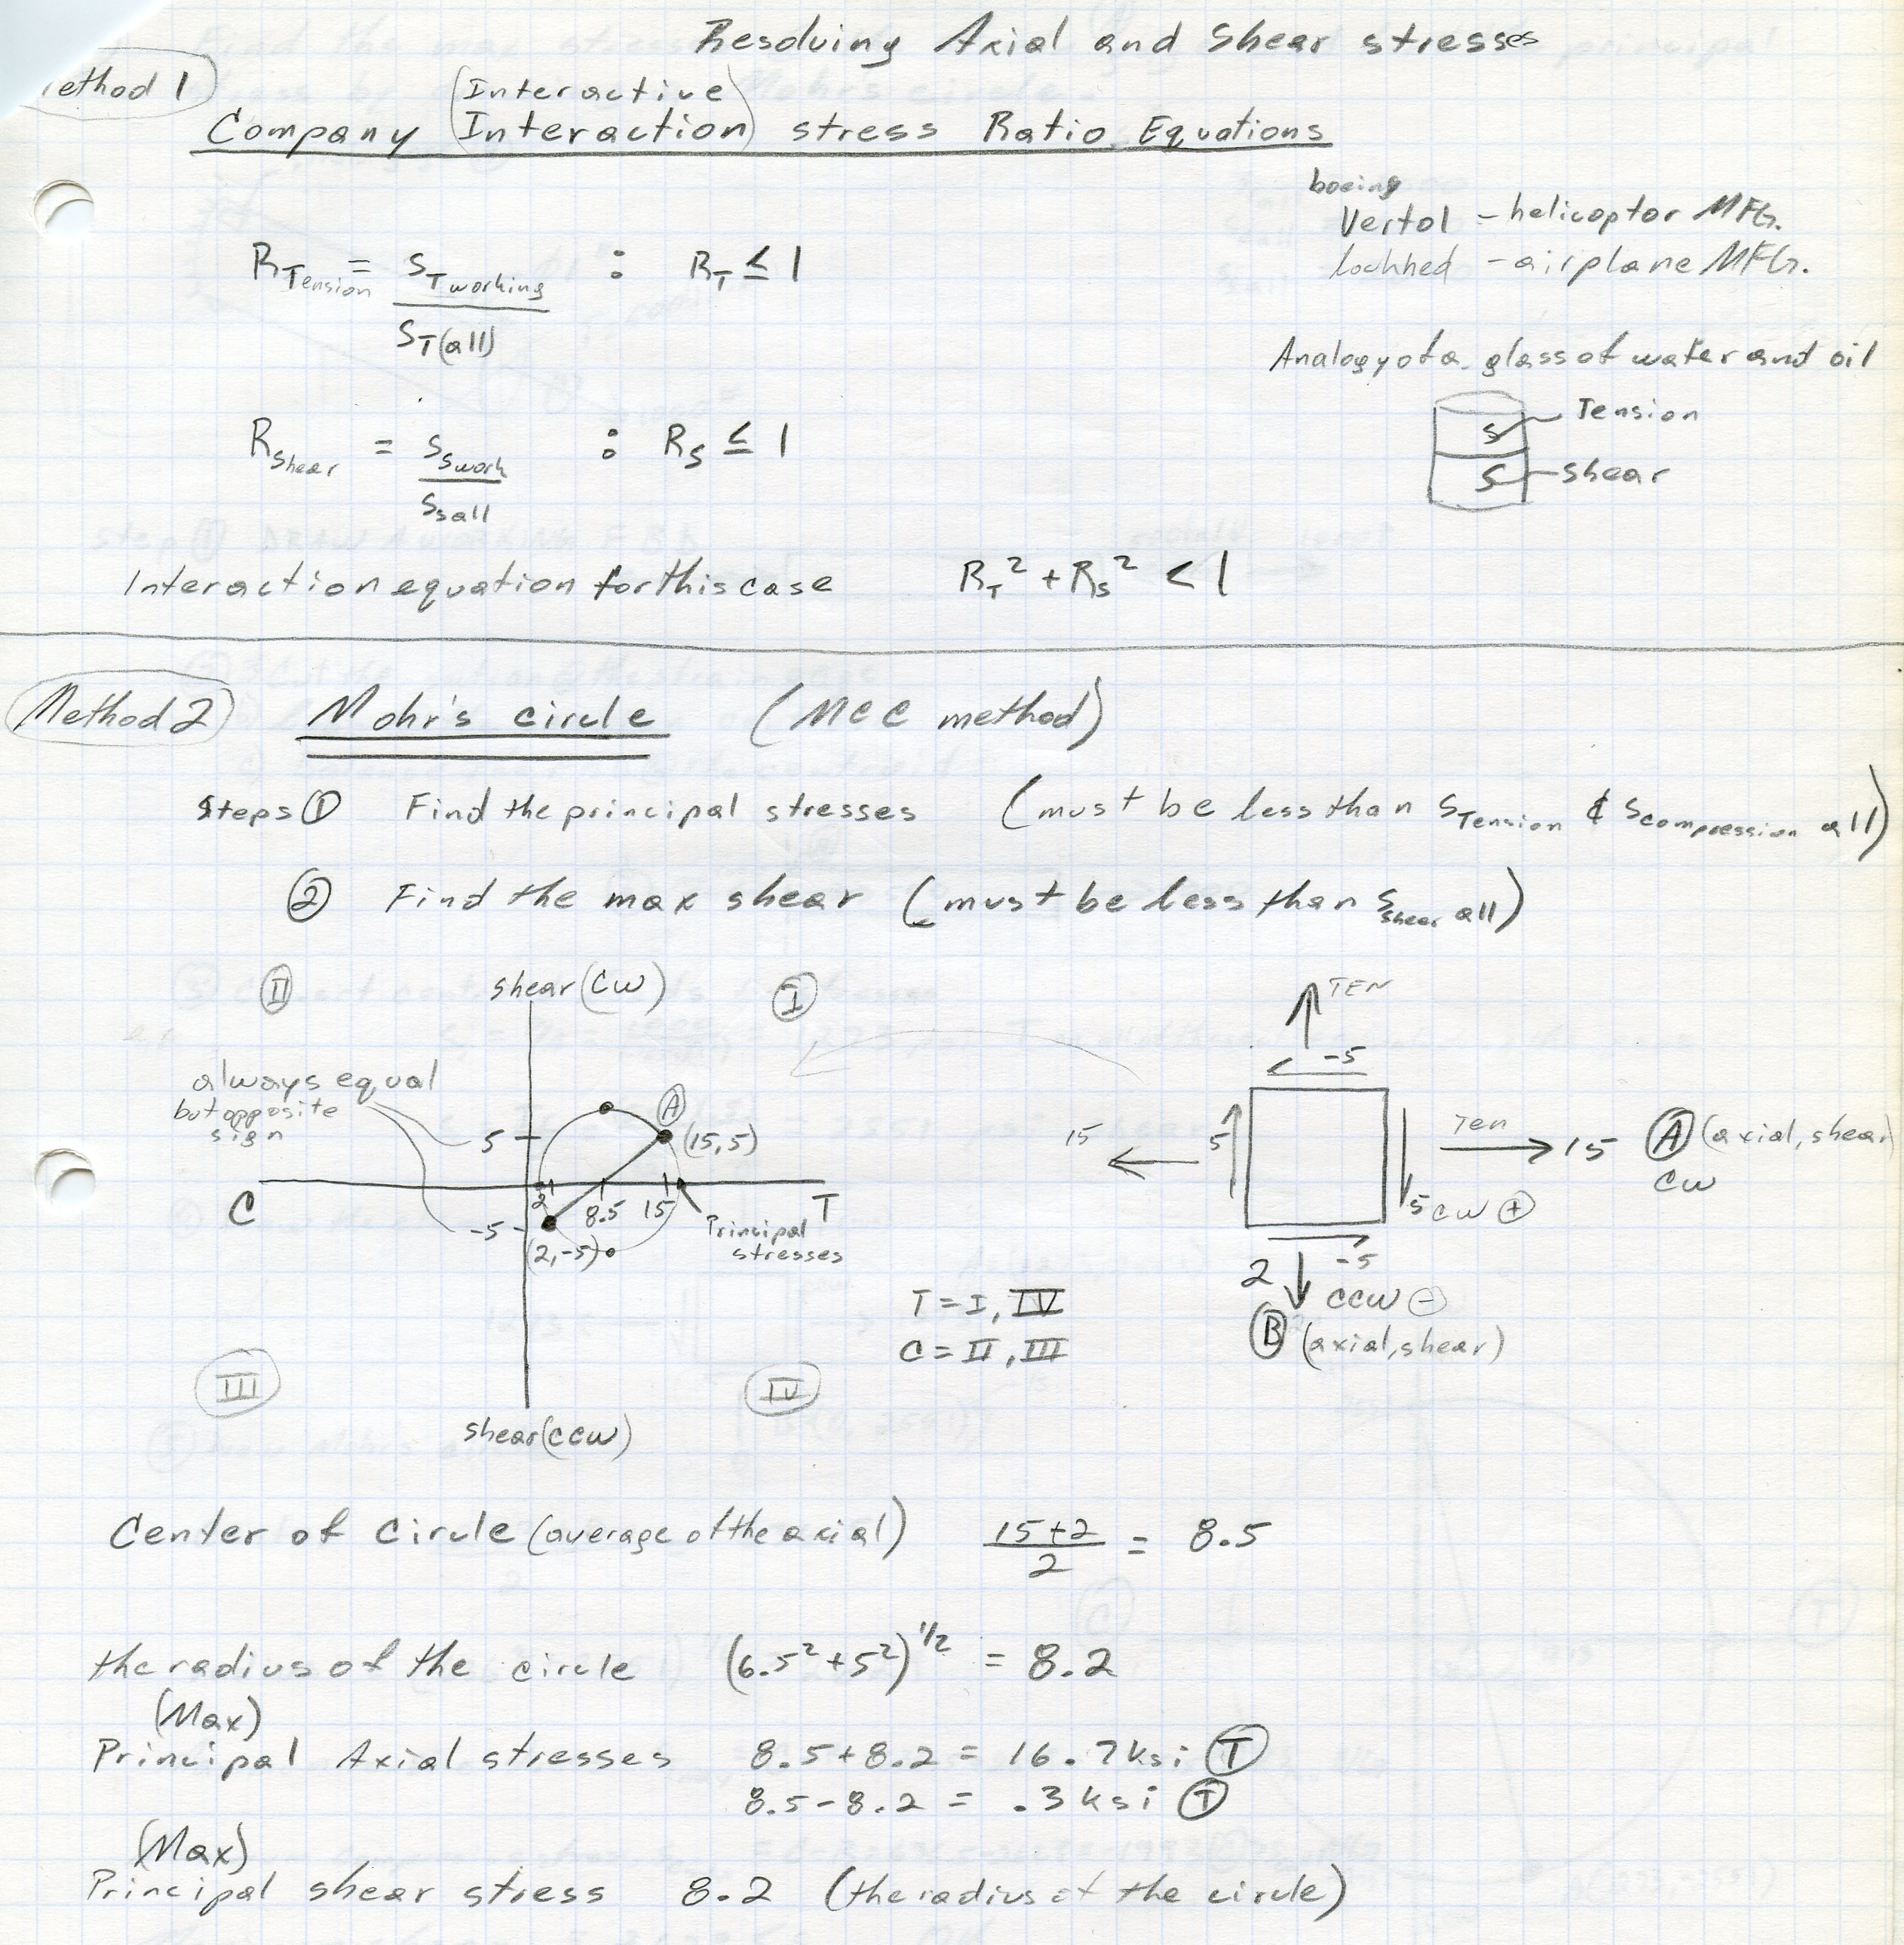 Resolving Axial and Shear stresses
ethod 1
(Interactive)
Company (Interaction) stress Ratio Equations
boeing
Vertol - helicoptor MFG.
lockhed - airplane MFG.
R_Tension = S_T working / S_T(all) : R_T ≤ 1
Analogy of a glass of water and oil
S Tension
S shear
R_shear = S_s work / S_s all : R_S ≤ 1
Interaction equation for this case R_T² + R_S² < 1
Method 2 Mohr's circle (MCC method)
Steps ① Find the principal stresses (must be less than S_Tension & S_compression all)
② Find the max shear (must be less than S_shear all)
II shear (CW) I
TEN
-5
always equal
but opposite
sign
A
5 (15,5)
15 5 Ten 15 A (axial, shear)
CW
C 2 8.5 15 T
5 CW +
-5 (2,-5) Principal
stresses
-5
2 CCW -
B (axial, shear)
T = I, IV
C = II, III
III IV
shear (CCW)
Center of circle (average of the axial) 15+2 / 2 = 8.5
the radius of the circle (6.5² + 5²)^1/2 = 8.2
(Max)
Principal Axial stresses 8.5 + 8.2 = 16.7 ksi T
8.5 - 8.2 = .3 ksi T
(Max)
Principal shear stress 8.2 (the radius of the circle)